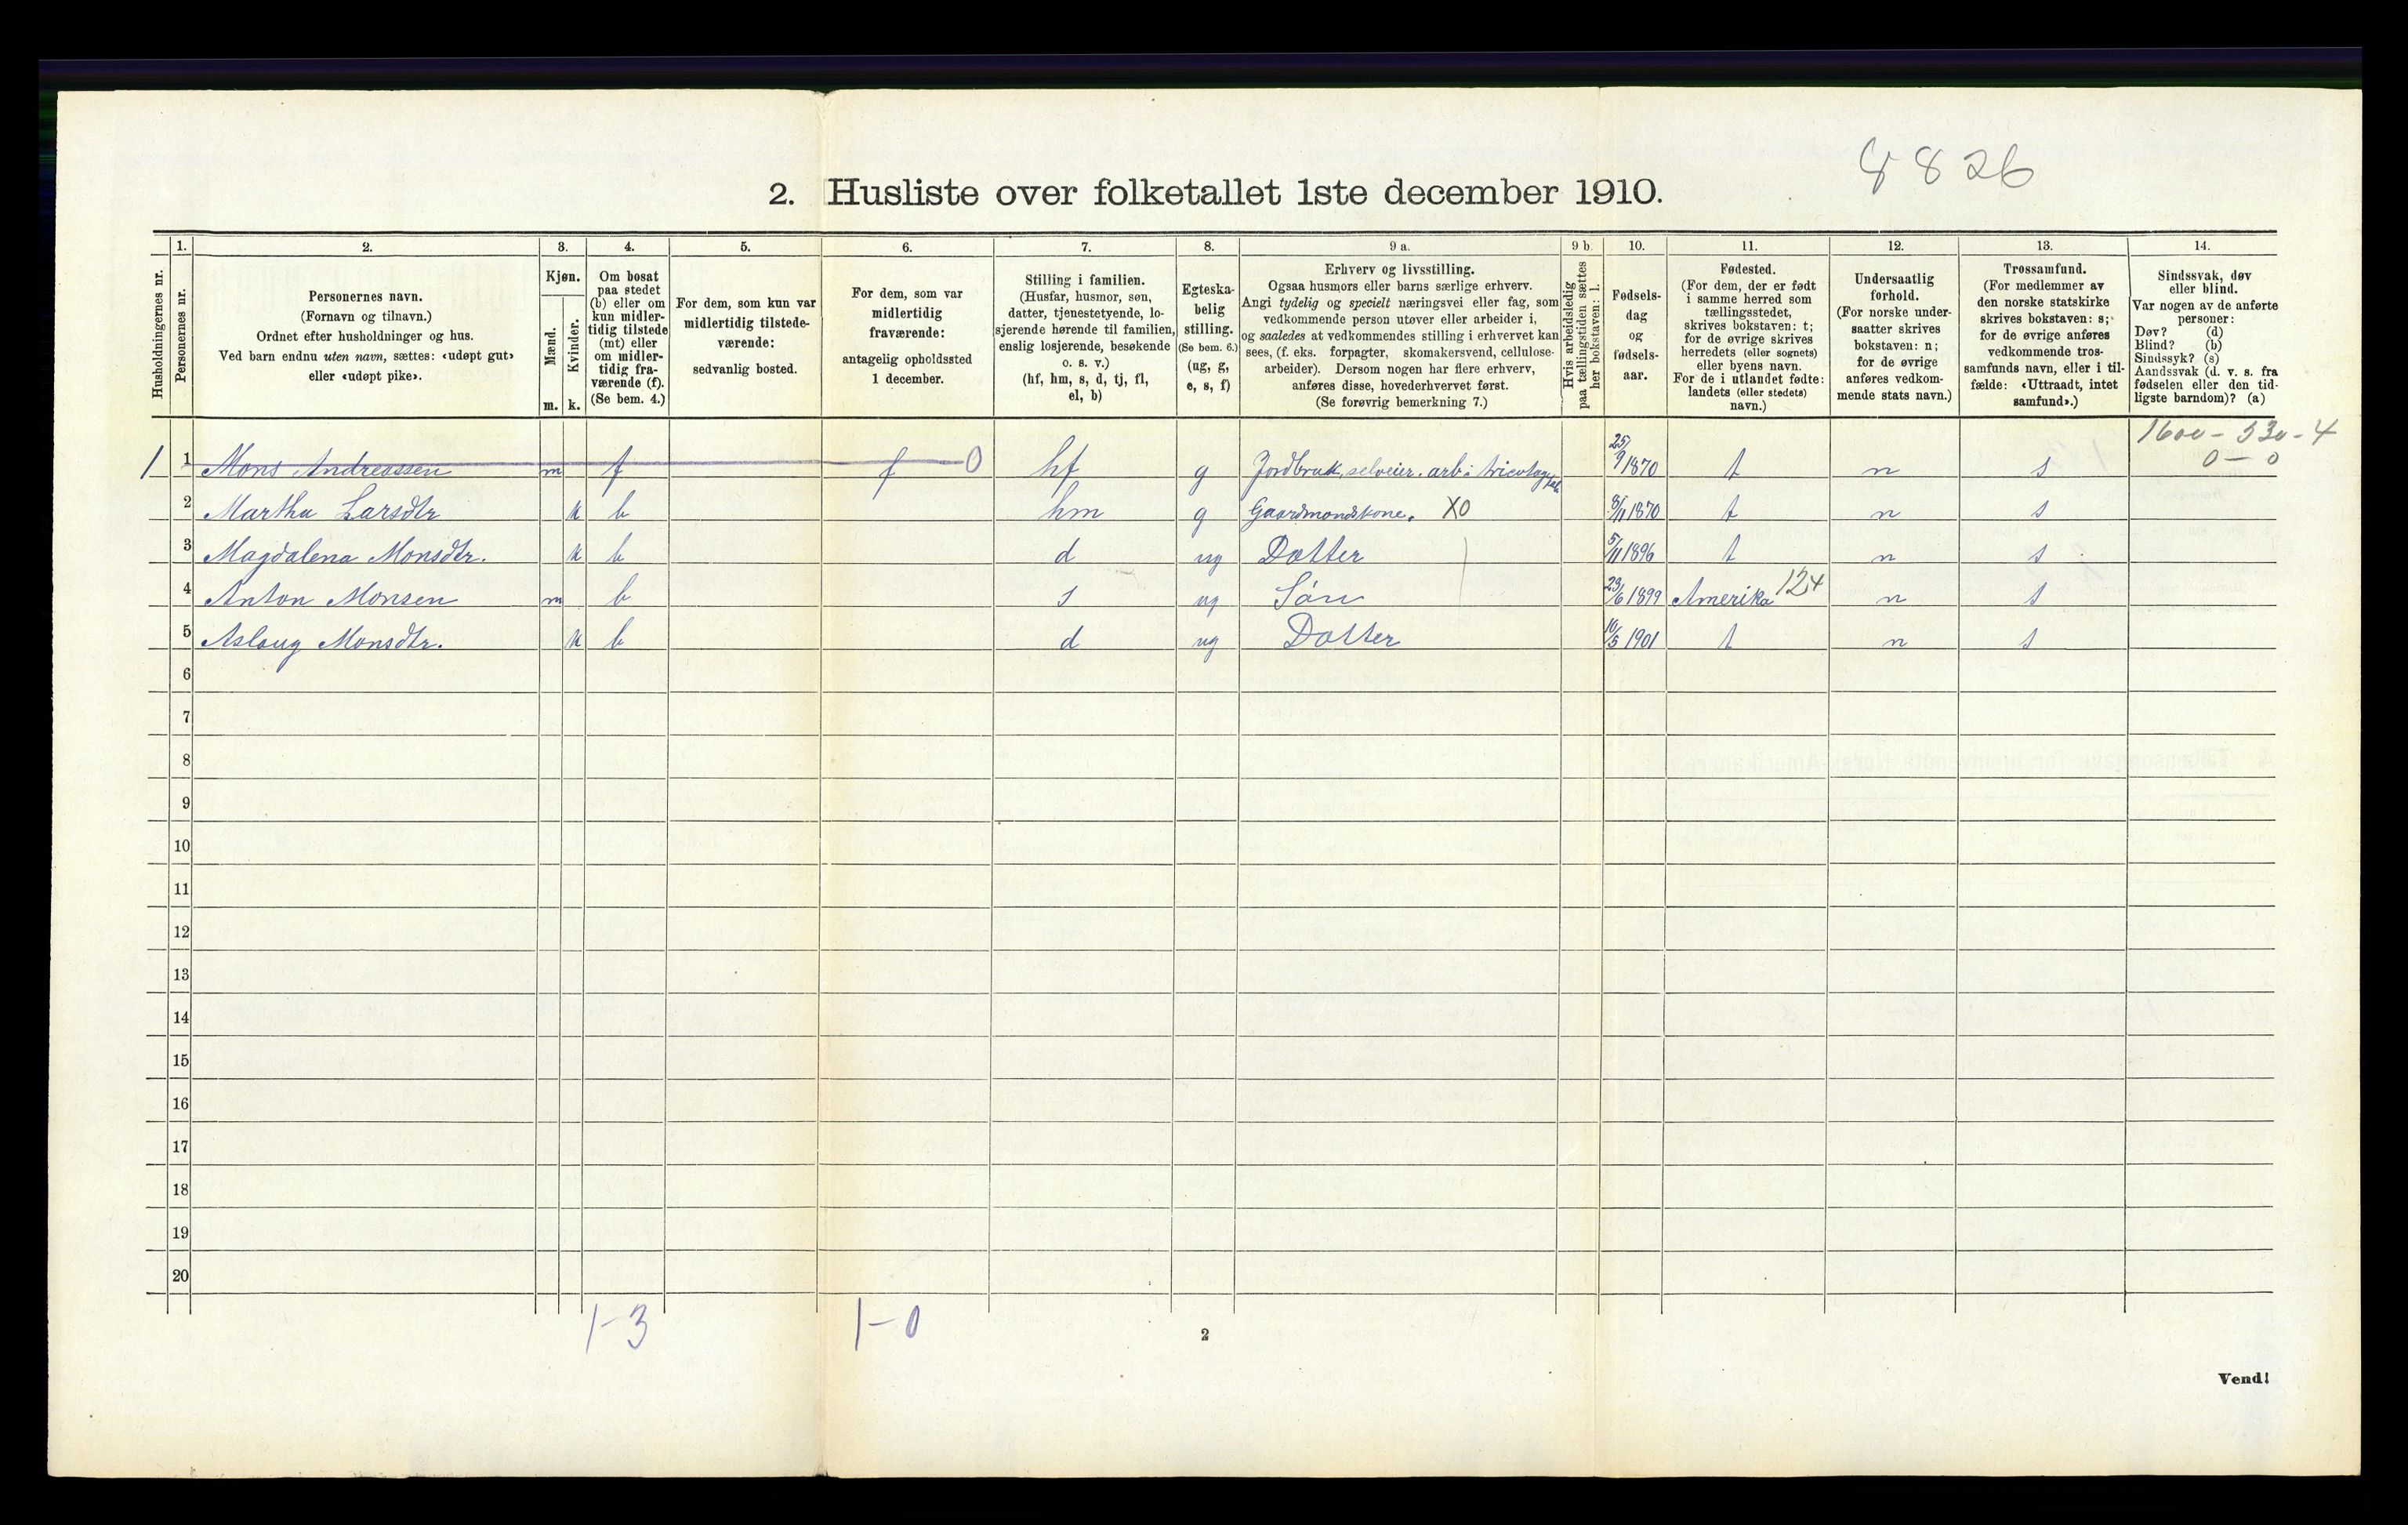 8826
2. Husliste over folketallet 1ste december 1910.
Husholdningernes nr.
1.
Personernes nr.
2.
Personernes navn.
(Fornavn og tilnavn.)
Ordnet efter husholdninger og hus.
Ved barn endnu uten navn, sættes: «udøpt gut»
eller «udøpt pike».
3.
Kjøn.
Mænd.
Kvinder.
m. k.
4.
Om bosat
paa stedet
(b) eller om
kun midler-
tidig tilstede
(mt) eller
om midler-
tidig fra-
værende (f).
(Se bem. 4.)
5.
For dem, som kun var
midlertidig tilstede-
værende:
sedvanlig bosted.
6.
For dem, som var
midlertidig
fraværende:
antagelig opholdssted
1 december.
7.
Stilling i familien.
(Husfar, husmor, søn,
datter, tjenestetyende, lo-
sjerende hørende til familien,
enslig losjerende, besøkende
o. s. v.)
(hf, hm, s, d, tj, fl,
el, b)
8.
Egteska-
belig
stilling.
(Se bem. 6.)
(ug, g,
e, s, f)
9 a.
Erhverv og livsstilling.
Ogsaa husmors eller barns særlige erhverv.
Angi tydelig og specielt næringsvei eller fag, som
vedkommende person utøver eller arbeider i,
og saaledes at vedkommendes stilling i erhvervet kan
sees, (f. eks. forpagter, skomakersvend, cellulose-
arbeider). Dersom nogen har flere erhverv,
anføres disse, hovederhvervet først.
(Se forøvrig bemerkning 7.)
9 b.
Hvis arbeidsledig
paa tællingstiden sættes
her bokstaven: l.
10.
Fødsels-
dag
og
fødsels-
aar.
11.
Fødested.
(For dem, der er født
i samme herred som
tællingsstedet,
skrives bokstaven: t;
for de øvrige skrives
herredets (eller sognets)
eller byens navn.
For de i utlandet fødte:
landets (eller stedets)
navn.)
12.
Undersaatlig
forhold.
(For norske under-
saatter skrives
bokstaven: n;
for de øvrige
anføres vedkom-
mende stats navn.)
13.
Trossamfund.
(For medlemmer av
den norske statskirke
skrives bokstaven: s;
for de øvrige anføres
vedkommende tros-
samfunds navn, eller i til-
fælde: «Uttraadt, intet
samfund».)
14.
Sindssvak, døv
eller blind.
Var nogen av de anførte
personer:
Døv? (d)
Blind? (b)
Sindssyk? (s)
Aandssvak (d. v. s. fra
fødselen eller den tid-
ligste barndom)? (a)
1600 - 530 - 4
0 - 0
1 1 Mons Andreassen m f f 0 hf g Jordbruk, selveier. arb. i tricotagefab. 25/9 1870 t n s
2 Martha Larsdtr k b hm g Gaardmandskone. X0 8/11 1870 t n s
3 Magdalena Monsdtr. k b d ug Datter 5/11 1896 t n s
4 Anton Monsen m b s ug Søn 23/6 1899 Amerika 124 n s
5 Aslaug Monsdtr. k b d ug Datter 10/5 1901 t n s
6
7
8
9
10
11
12
13
14
15
16
17
18
19
20
1-3 1-0
2
Vend!